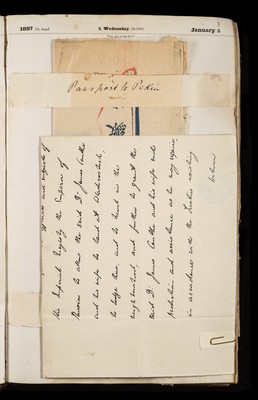 1897
5 Wednesday
January 5
Passport to Pekin
and subjects of
His Imperial Majesty the Emperor of
to allow the said Dr. James Cantlie
and his wife to land at Vladivostock,
to lodge there, and to travel in the
neighbourhood, and further to grant the
said Dr. James Cantlie and his wife such
protection and assistance as he may require,
in accordance with the Treaties existing
between